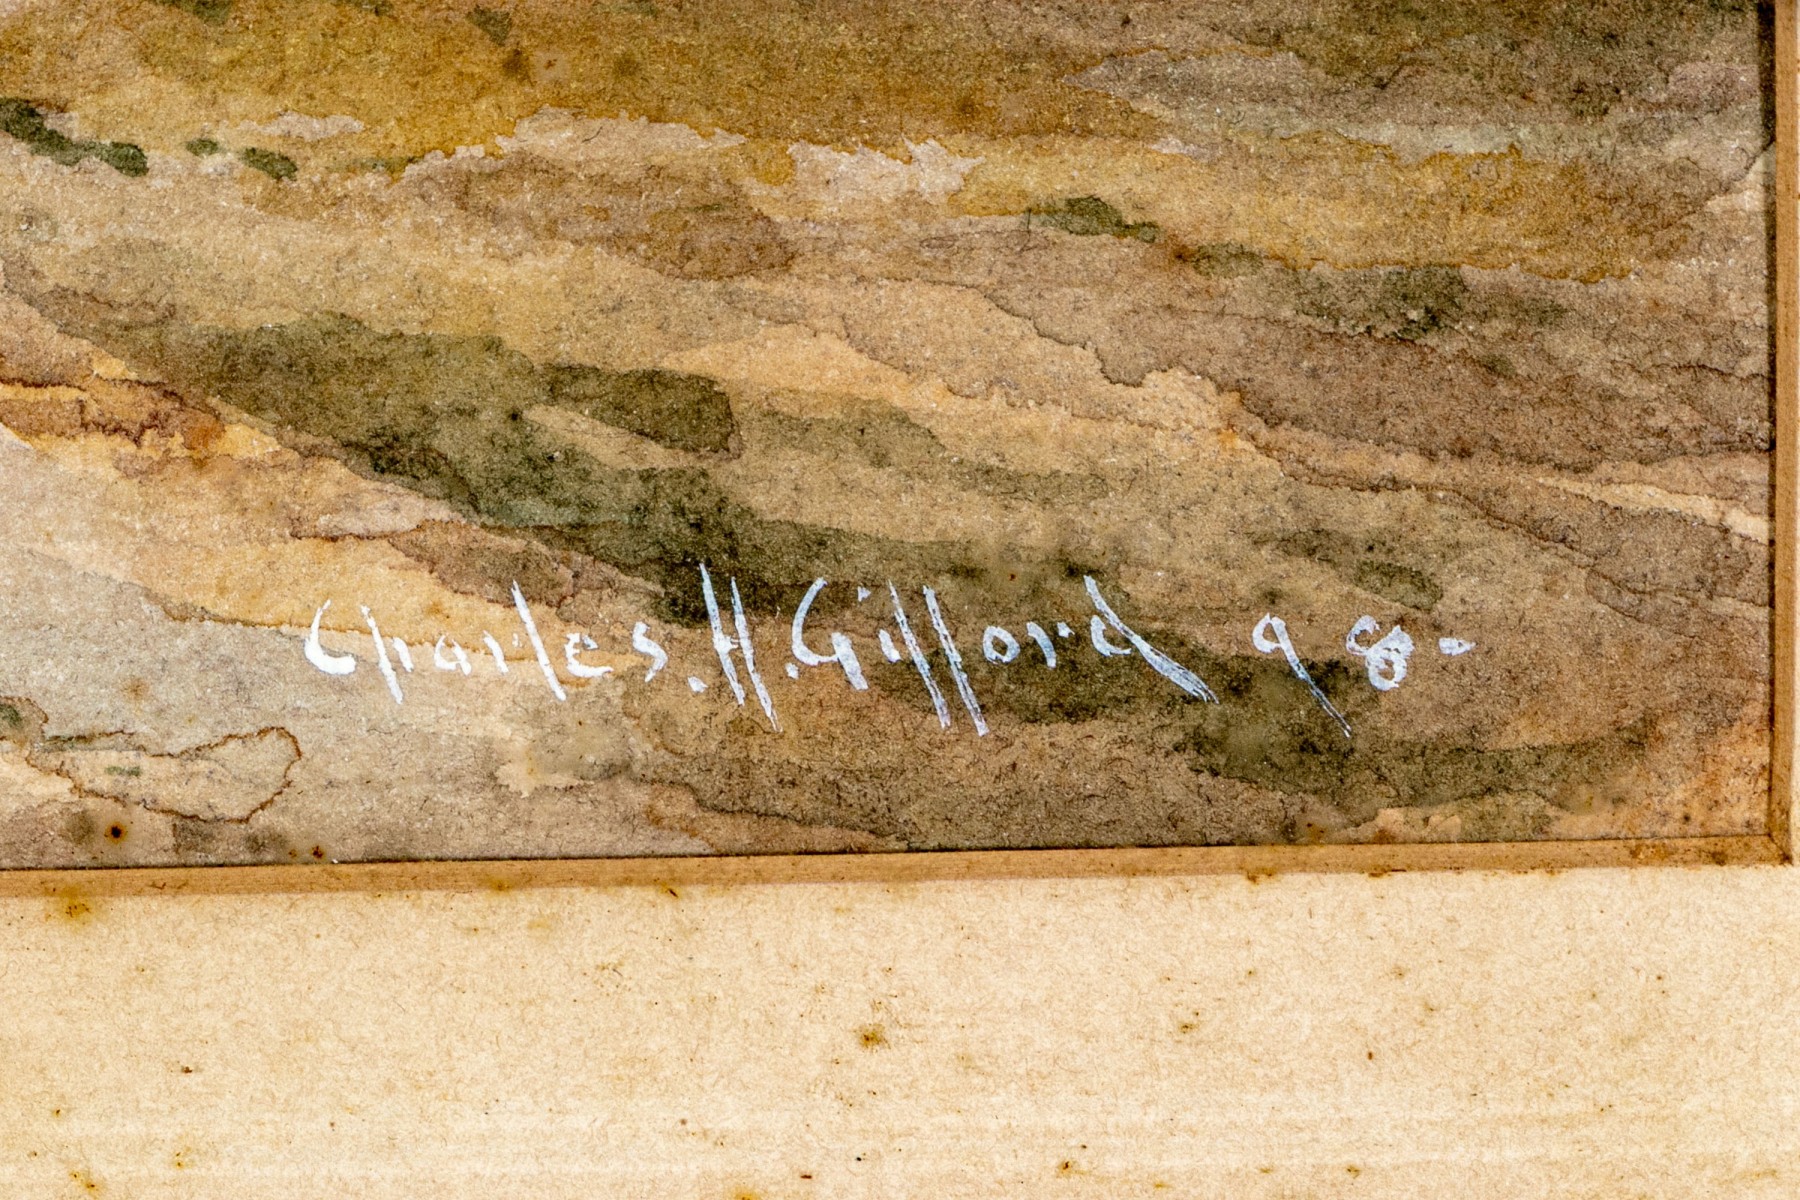 Charles.H.Gifford 98-